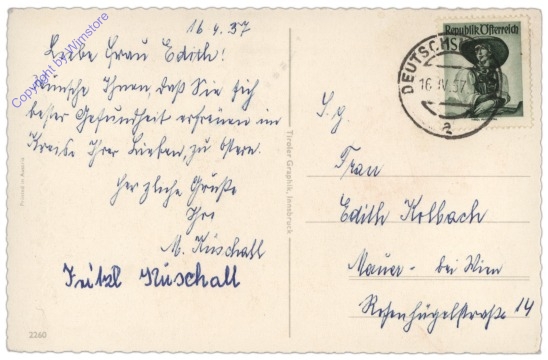 16.4.57
Liebe Frau Edith!
Wünsche Ihnen, daß Sie sich
bester Gesundheit erfreuen im
Kreise Ihrer Lieben, zu Ostern.
Herzliche Grüße
Ihre
M. Küschall
Fritzl Küschall
2260
Printed in Austria
Tiroler Graphik, Innsbruck
Republik Österreich
DEUTSCHS
16.IV.57
a
S. g.
Frau
Edith Kolbach
Mauer- bei Wien
Rosenhügelstraße 14
Copyright by Wijnstore